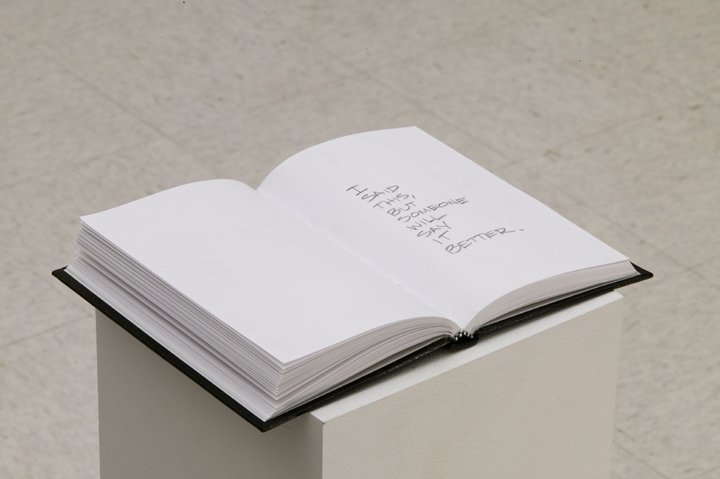 I SAID
THIS,
BUT
SOMEONE
WILL
SAY
IT
BETTER.